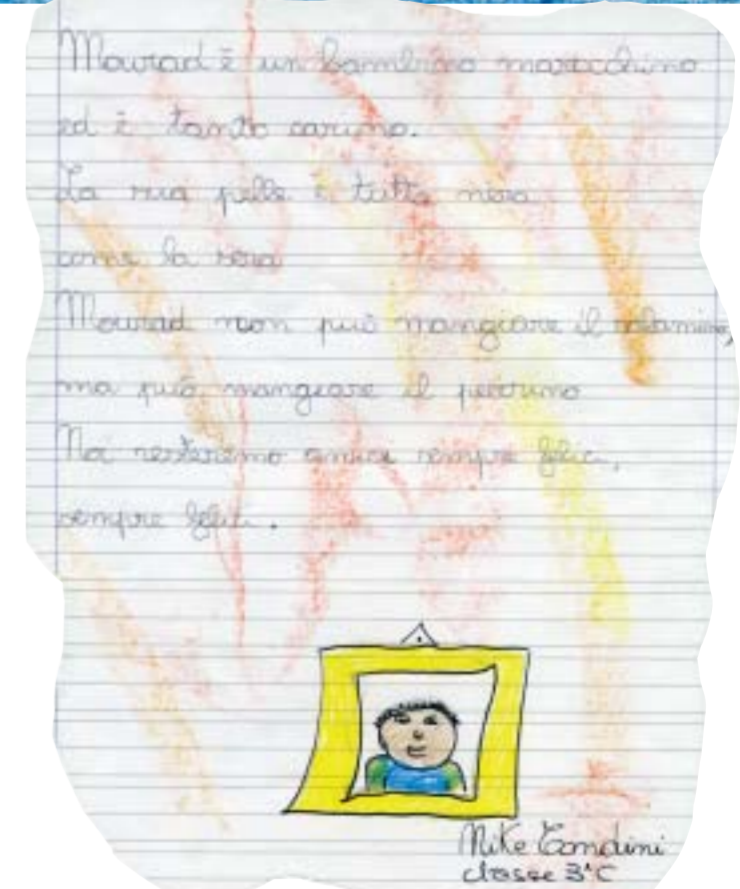 Mourad è un bambino marocchino
ed è tanto carino.
La sua pelle è tutta nera
come la sera
Mourad non può mangiare il salamino,
ma può mangiare il panino
Noi resteremo amici sempre felici,
sempre felici.
Mike Tondini
classe 3°C